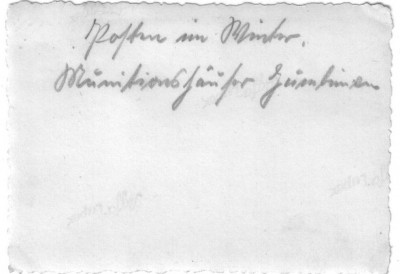 Posten im Winter.
Munitionshäuser Gumbinnen